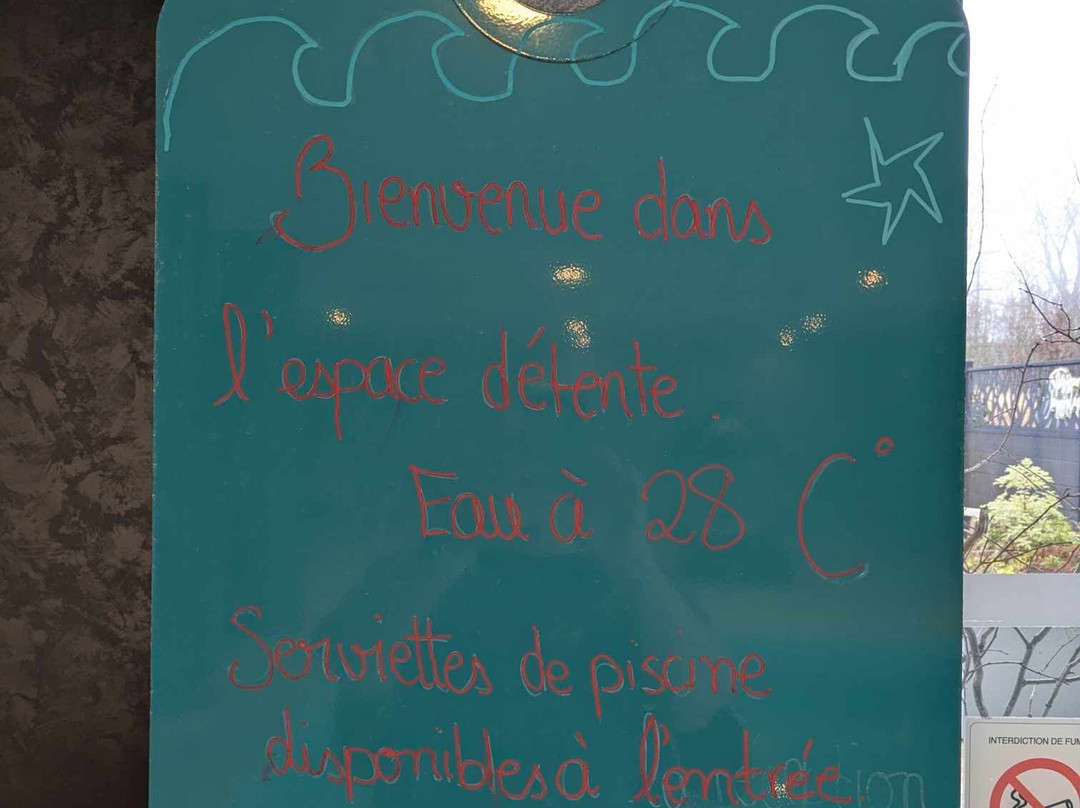 Bienvenue dans
l'espace détente.
Eau à 28 C°
Serviettes de piscine
disponibles à l'entrée
INTERDICTION DE FUM